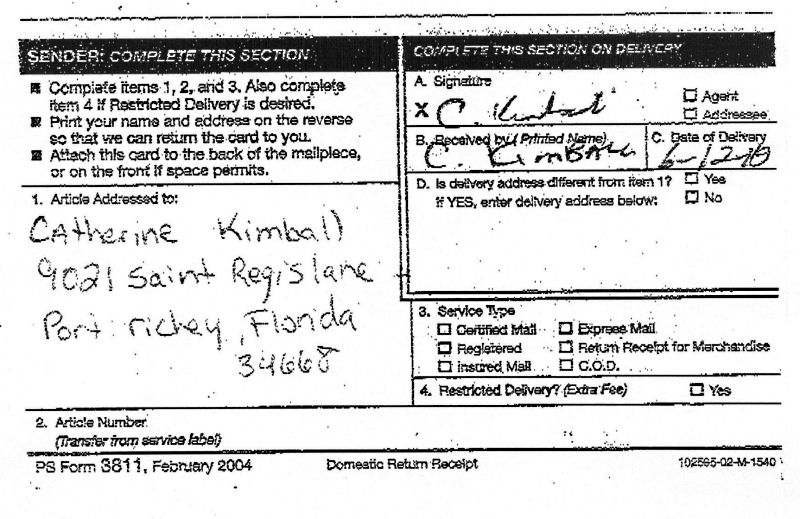 SENDER: COMPLETE THIS SECTION
■ Complete items 1, 2, and 3. Also complete
item 4 if Restricted Delivery is desired.
■ Print your name and address on the reverse
so that we can return the card to you.
■ Attach this card to the back of the mailpiece,
or on the front if space permits.
1. Article Addressed to:
CAtherine Kimball
9021 Saint Regis lane
Port richey, Florida
34668
2. Article Number
(Transfer from service label)
COMPLETE THIS SECTION ON DELIVERY
A. Signature
X C. Kimball
☐ Agent
☐ Addressee
B. Received by (Printed Name)
C. KimBALL
C. Date of Delivery
6-12-10
D. Is delivery address different from item 1? ☐ Yes
If YES, enter delivery address below: ☐ No
3. Service Type
☐ Certified Mail ☐ Express Mail
☐ Registered ☐ Return Receipt for Merchandise
☐ Insured Mail ☐ C.O.D.
4. Restricted Delivery? (Extra Fee) ☐ Yes
PS Form 3811, February 2004 Domestic Return Receipt 102595-02-M-1540